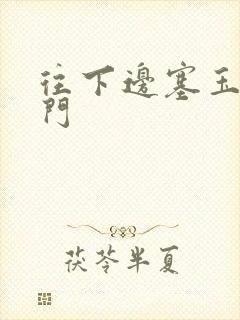 往下邊塞玉
門
茯苓半夏